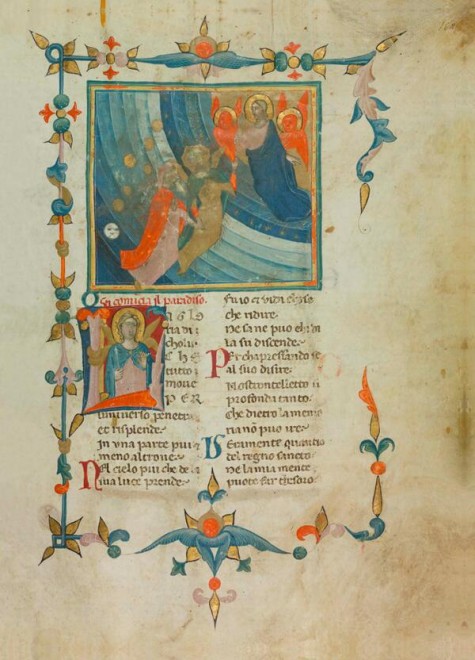 Qui comicia il paradiso.
La GLO
ria di
cholui
CHE
tutto
move
PER
luniverso penetra
et risplende.
In una parte piu
meno altrove.
Nel cielo piu che de la
sua luce prende.
Fu io et vidi chose
che ridire.
Ne sa ne puo chi di
la su discende.
Perchapressando se
al suo disire.
Nostrontelletto si
profonda tanto.
Che dietro la memo
ria no puo ire.
Veramente quantio
del regno sancto
Ne la mia mente
puote far thesoro.